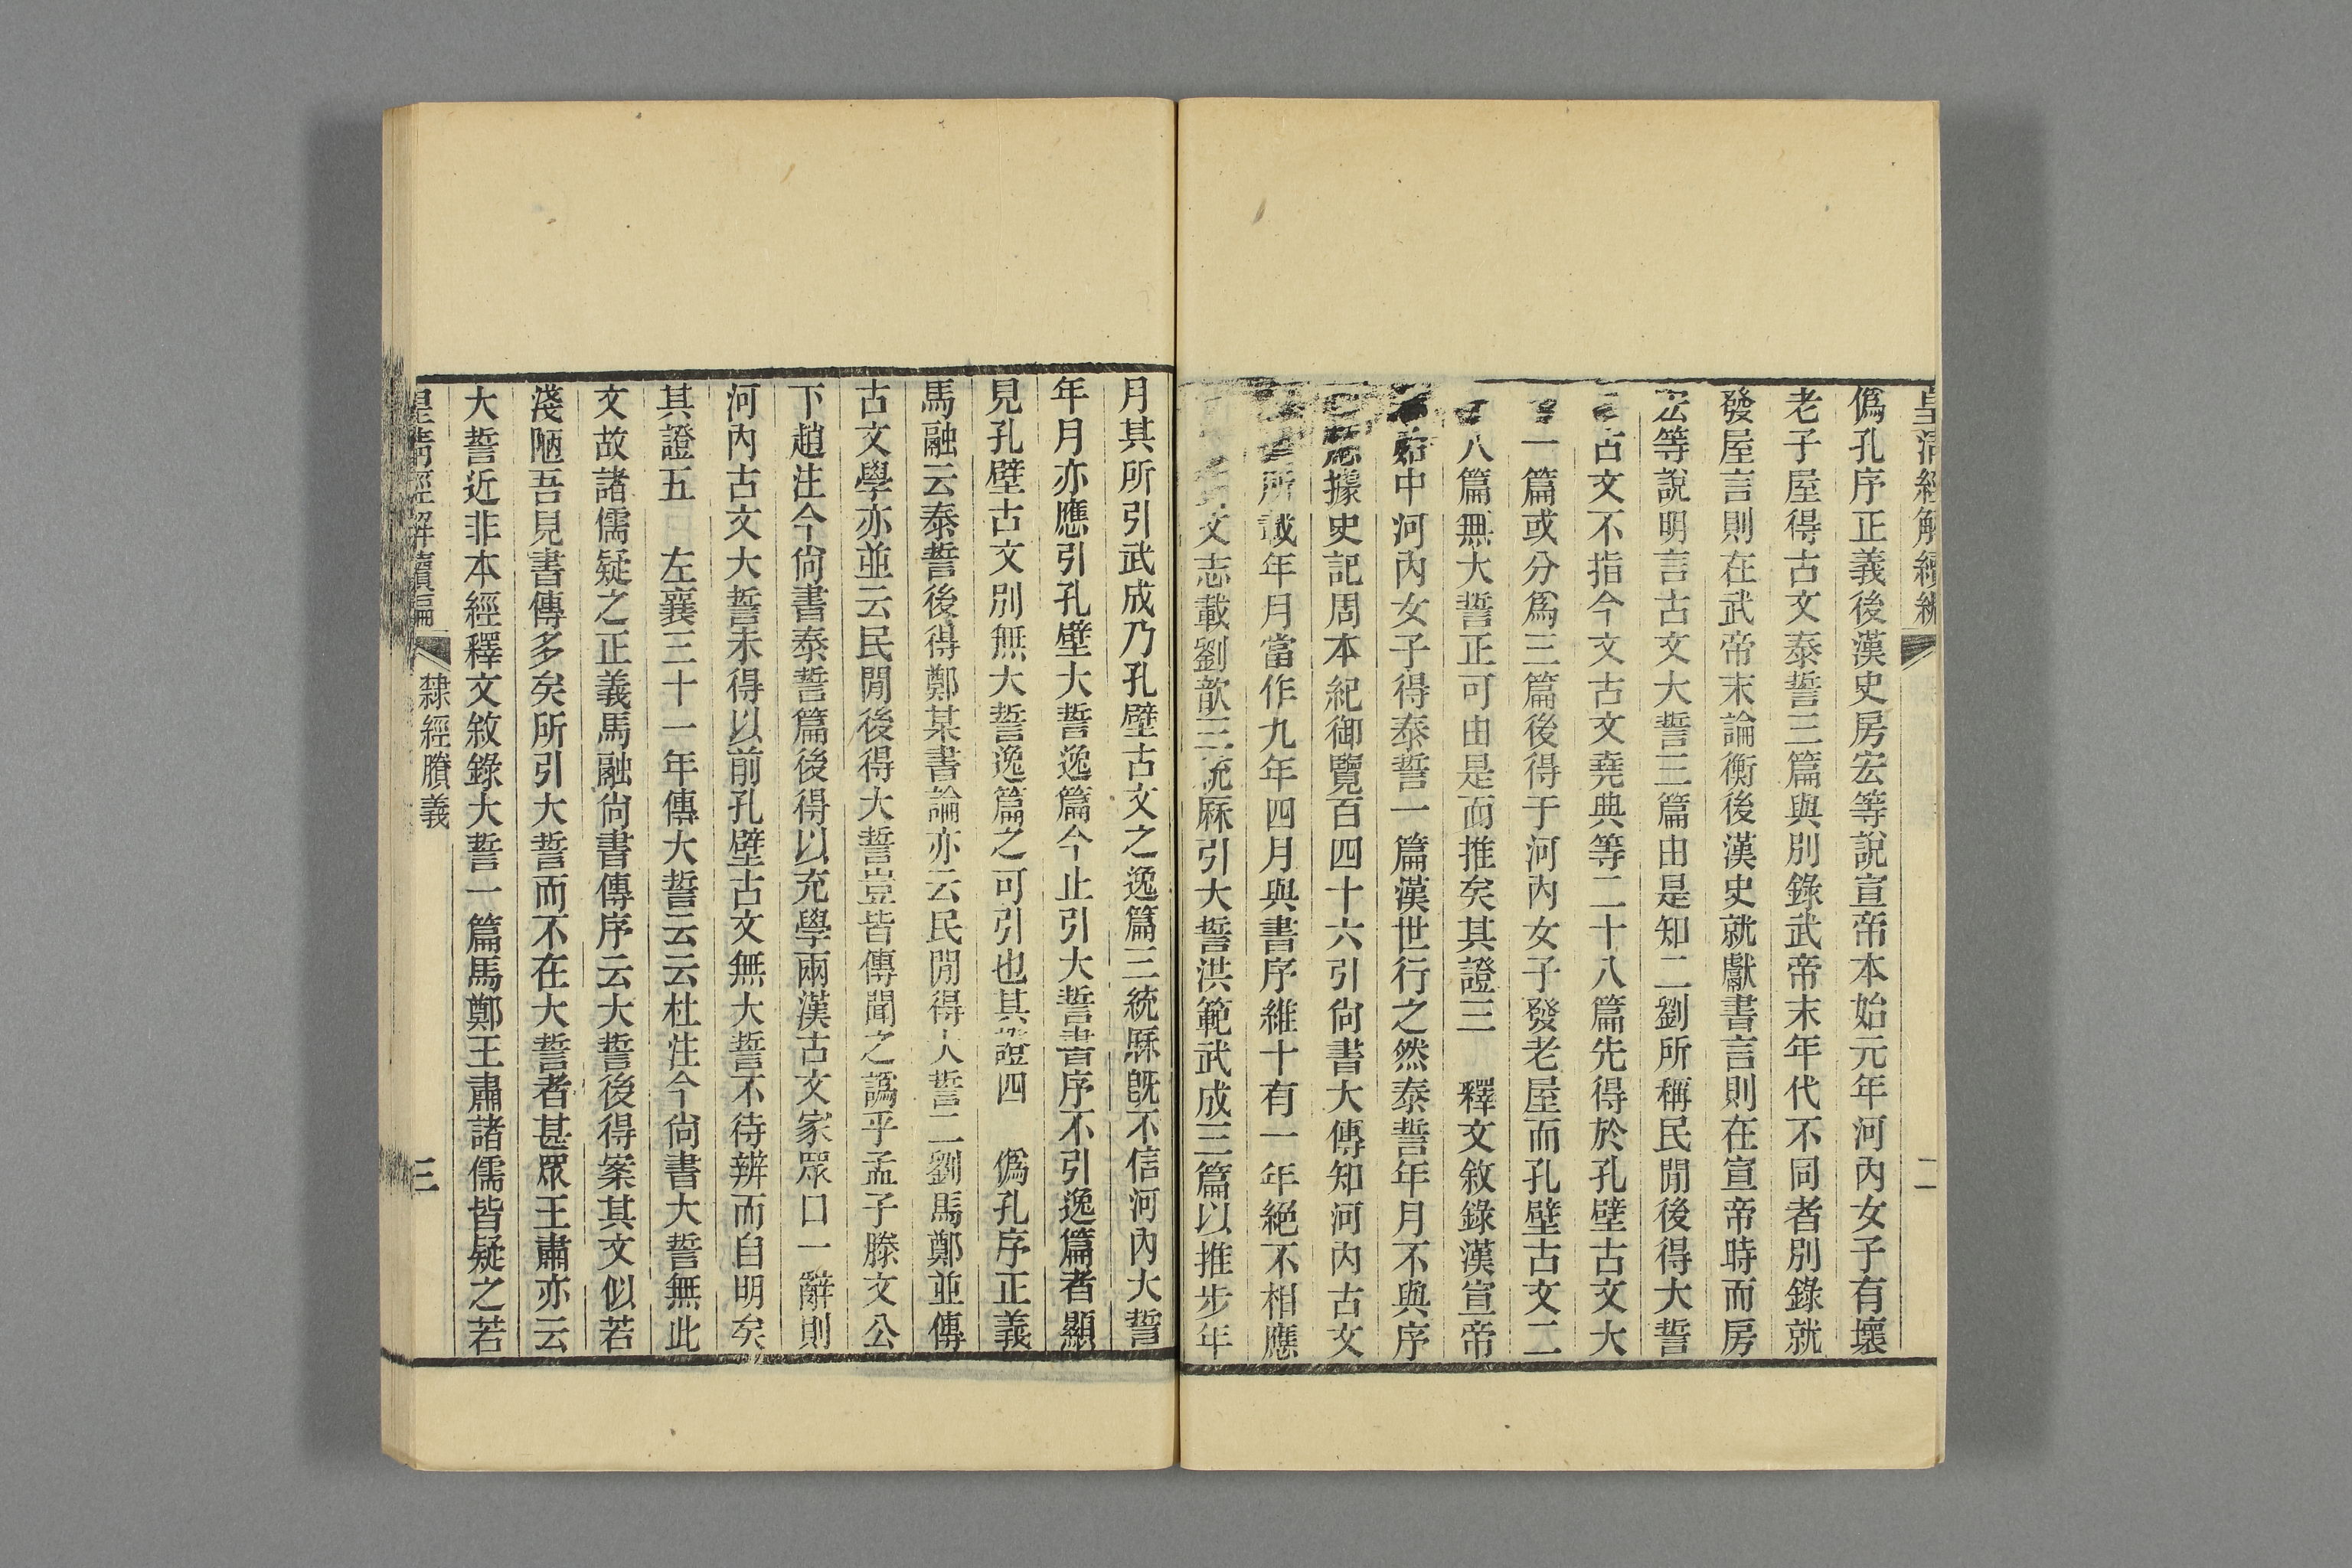 皇清經解續編
二
僞孔序正義後漢史房宏等說宣帝本始元年河內女子有壞
老子屋得古文泰誓三篇與別錄武帝末年代不同者別錄就
發屋言則在武帝末論衡後漢史就獻書言則在宣帝時而房
宏等說明言古文大誓三篇由是知二劉所稱民閒後得大誓
古文不指今文古文堯典等二十八篇先得於孔壁古文大
一篇或分爲三篇後得于河內女子發老屋而孔壁古文二
八篇無大誓正可由是而推矣其證三　釋文敘錄漢宣帝
始中河內女子得泰誓一篇漢世行之然泰誓年月不與序
據史記周本紀御覽百四十六引尙書大傳知河內古文
所載年月當作九年四月與書序維十有一年絕不相應
文志載劉歆三統厤引大誓洪範武成三篇以推步年
月其所引武成乃孔壁古文之逸篇三統厤旣不信河內大誓
年月亦應引孔壁大誓逸篇今止引大誓書序不引逸篇者顯
見孔壁古文別無大誓逸篇之可引也其證四　僞孔序正義
馬融云泰誓後得鄭某書論亦云民閒得大誓二劉馬鄭並傳
古文學亦並云民閒後得大誓豈皆傳聞之譌乎孟子滕文公
下趙注今尙書泰誓篇後得以充學兩漢古文家眾口一辭則
河內古文大誓未得以前孔壁古文無大誓不待辨而自明矣
其證五　左襄三十一年傳大誓云云杜注今尙書大誓無此
文故諸儒疑之正義馬融尙書傳序云大誓後得案其文似若
淺陋吾見書傳多矣所引大誓而不在大誓者甚眾王肅亦云
大誓近非本經釋文敘錄大誓一篇馬鄭王肅諸儒皆疑之若
皇淸經解續編
隸經賸義
三